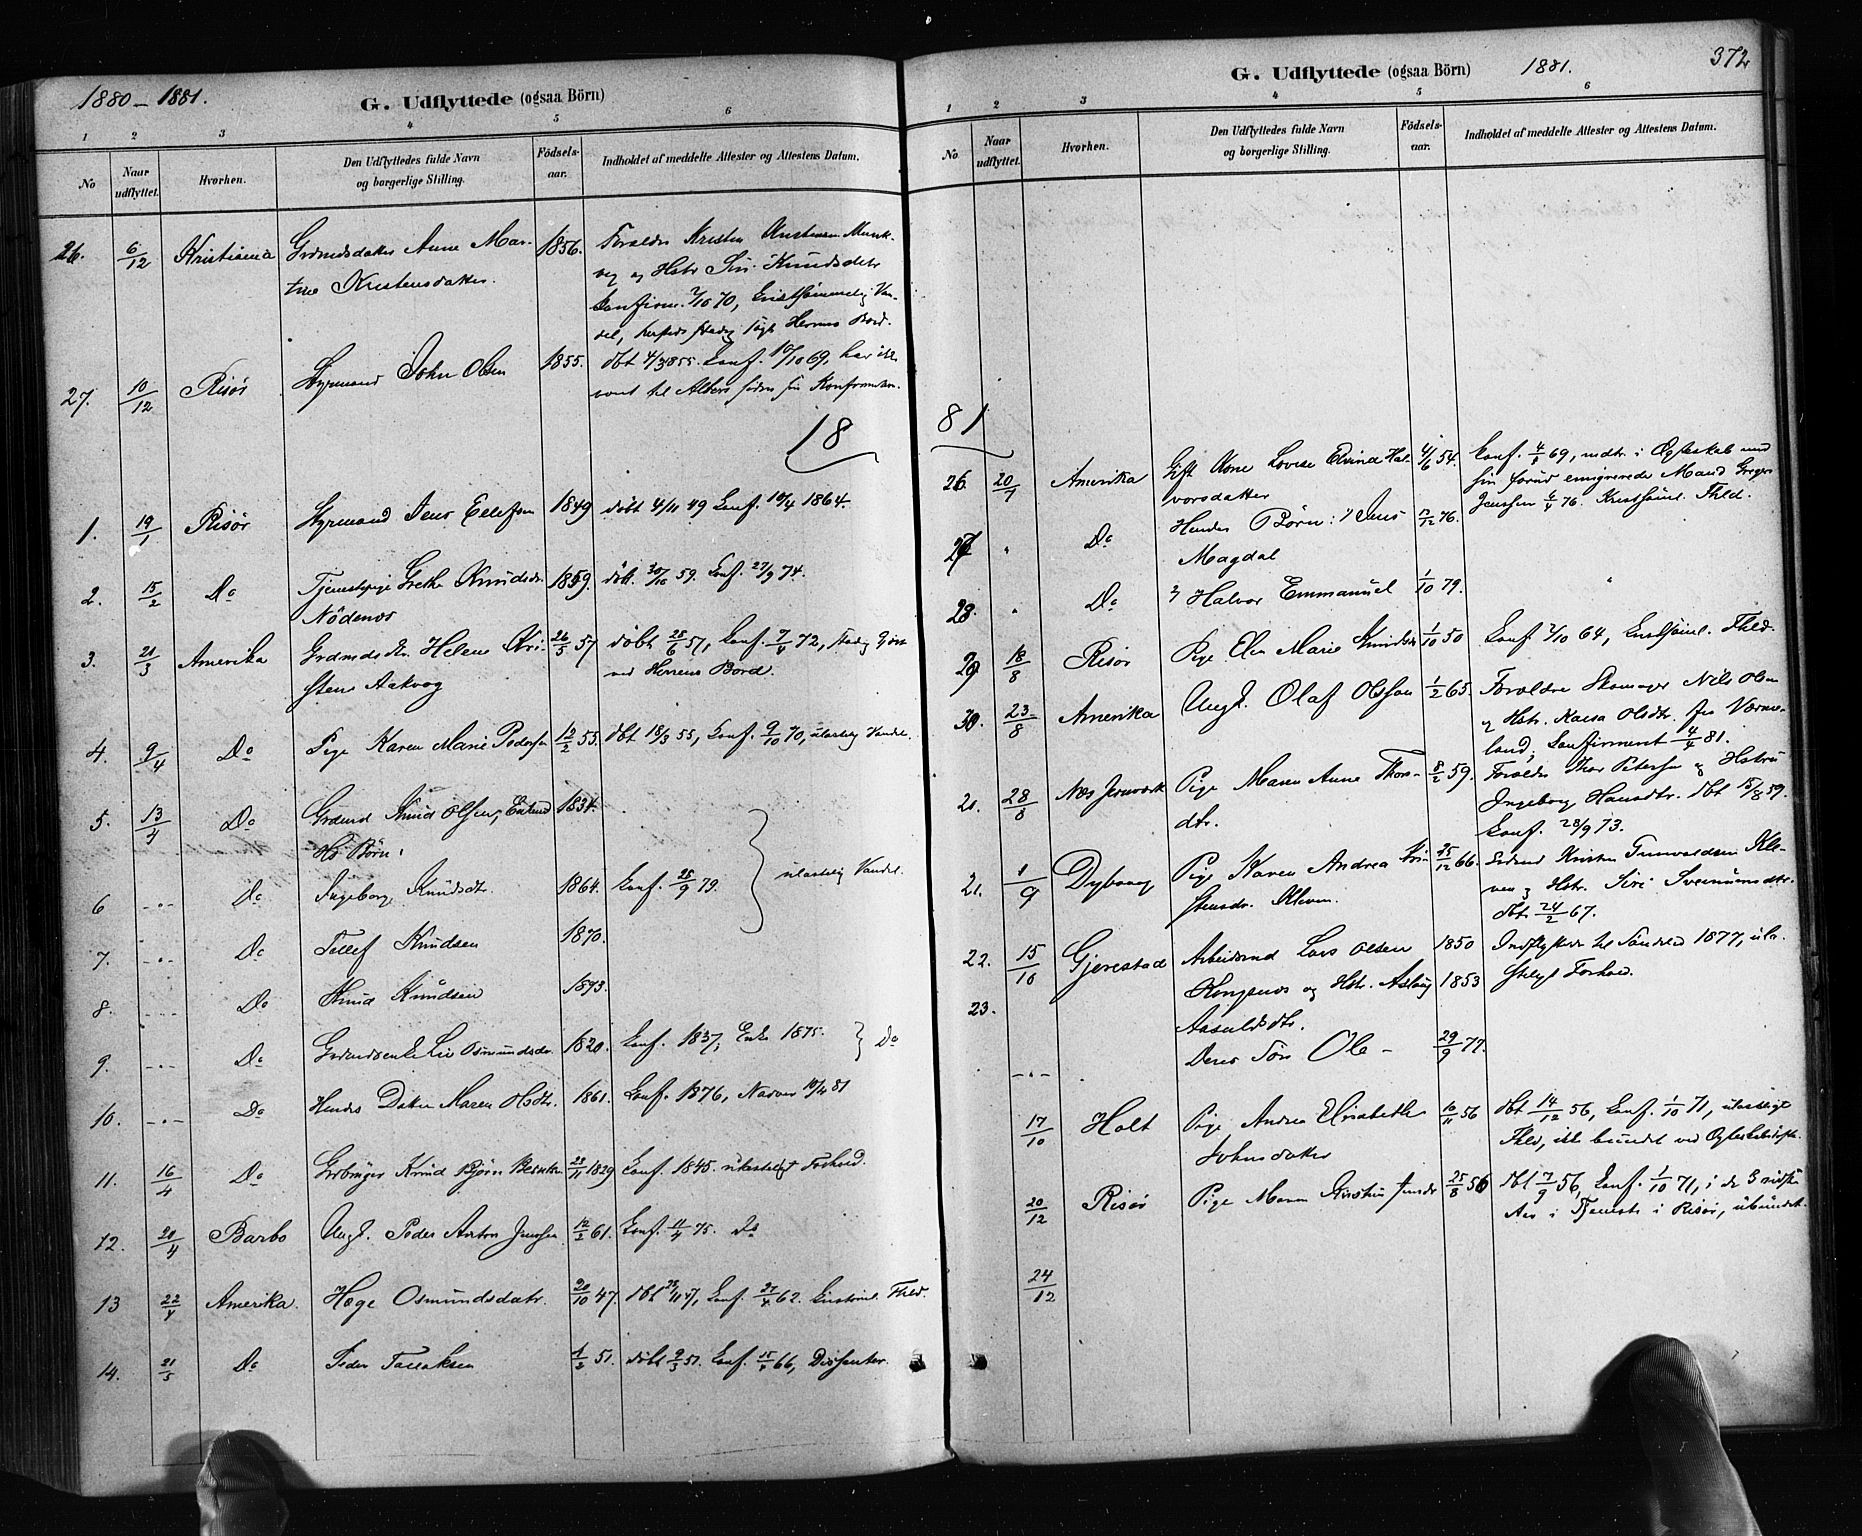 1880-1881.
G. Udflyttede (ogsaa Börn)
1 2 3 4 5 6
No
Naar udflyttet.
Hvorhen.
Den Udflyttedes fulde Navn og borgerlige Stilling.
Födsels-aar.
Indholdet af meddelte Attester og Attestens Datum.
26. 6/12 Kristiania Grdmdsdatter Anne Mar- 1856. Forældre Kristen
tine Kristensdatter. og Hstr Siri Knudsdtr
Konfirm. 2/10 70,
Herrens Bord.
27. 10/12 Risör Styrmand John Olsen 1855. dbt 4/3 1855. Konf. 10/10 69, har ikke
været til Alters siden sin Konfirmation.
18
1. 19/1 Risör Styrmand Jens Ellefsen 1849 döbt 4/11 49 Konf. 10/4 1864.
2. 15/2 Do Tjenestepige Grethe Knudsdr 1859. döbt. 30/10 59. Konf. 27/9 74.
Nödenes
3. 21/3 Amerika Helene Kri- 26/5 57 döbt 28/6 57, Konf. 7/4 72, stadig Gjæst
stens Aakvag ved Herrens Bord.
4. 9/4 Do Pige Karen Marie Pedersen 12/2 55. dbt 18/3 55, Konf. 9/10 70, ulastelig Vandel.
5. 13/4 Do Grdmd Knud Olsen, 1834.
Hs Börn:
6 -"- Do Ingeborg Knudsdtr. 1864. Konf. 28/9 79. ulastelig Vandel.
7. -"- Do Tellef Knudsen 1870.
8. -"- Do Knud Knudsen 1873.
9. -"- Do Liv Osmundsdr. 1820. Konf. 1837, Enke 1875. Do
10. -"- Do Hendes Datter Maren Olsdtr. 1861. Konf. 1876, 10/4 81
11. 16/4 Do Knud Björn 23/11 1829 Konf. 1845. ulasteligt Forhold.
12. 20/4 Barbo Ungk. Peder Anton Jensen 12/2 61. Konf. 11/4 75. Do
13 22/4 Amerika. Hæge Osmundsdatr. 20/10 47. dbt 25/11 47, Konf. 27/4 62. Fhld.
14. 21/5 Do Peder Tallaksen 4/2 51. döbt 9/3 51. Konf. 15/4 66, Dissenter.
G. Udflyttede (ogsaa Börn)
1881.
372
1 2 3 4 5 6
No
Naar udflyttet.
Hvorhen.
Den Udflyttedes fulde Navn og borgerlige Stilling.
Födsels-aar.
Indholdet af meddelte Attester og Attestens Datum.
81
26 20/7 Amerika Gift Kone Lovise Elvine Hal- 4/6 54. Konf. 69, indtr. i Ægteskab med
vorsdatter sin forud emigrerede Mand Greger
Jenssen 6/4 76. Fhld.
27 " Do Hendes Börn: 1/ Jens 17/12 76.
Magdal
28. " Do 2/ Halvor Emmanuel 1/10 79. "
29 18/8 Risör Pige Elen Marie Knudsdr 1/10 50 Konf 2/10 64, Fhld.
30. 23/8 Amerika Ungk. Olaf Olsson 1/2 65. Forældre Skomager Nils Olsen
og Hstr. Kaisa Olsdtr. fra Værme-
land, Konfirmeret 4/4 81.
21. 28/8 Næs Jernværk Pige Maren Anne Thors- 8/2 59. Forældre Thor Petersen og Hstru
dtr. Ingeborg Hansdtr. dbt 15/8 59.
Konf. 28/9 73.
21. 1/9 Dybvaag Pige Karen Andrea Kri- 25/12 66. Kristen Gunvaldsen Kle-
stensdr. Kleven. ven og Hstr. Siri
dbt 24/2 67.
22. 15/10 Gjerestad Arbeidsmd Lars Olsen 1850 Indflyttede til Söndeled 1877, ula-
23. og Hstr. Aslaug 1853 steligt Forhold.
Aasuldsdtr.
-"- Deres Sön Ole - 29/9 77.
17/10 Holt Pige Andrea Elisabeth 10/11 56 dbt 14/12 56, Konf. 1/10 71, ulasteligt
Johnsdatter Fhld, ikke bundet ved Ægteskabslöfte.
20/12 Risör Pige Maren Kirstine 25/8 56 dbt 7/9 56, Konf. 1/10 71, i de 3 sidste
Aar i Tjeneste i Risör, ubundet.
24/12